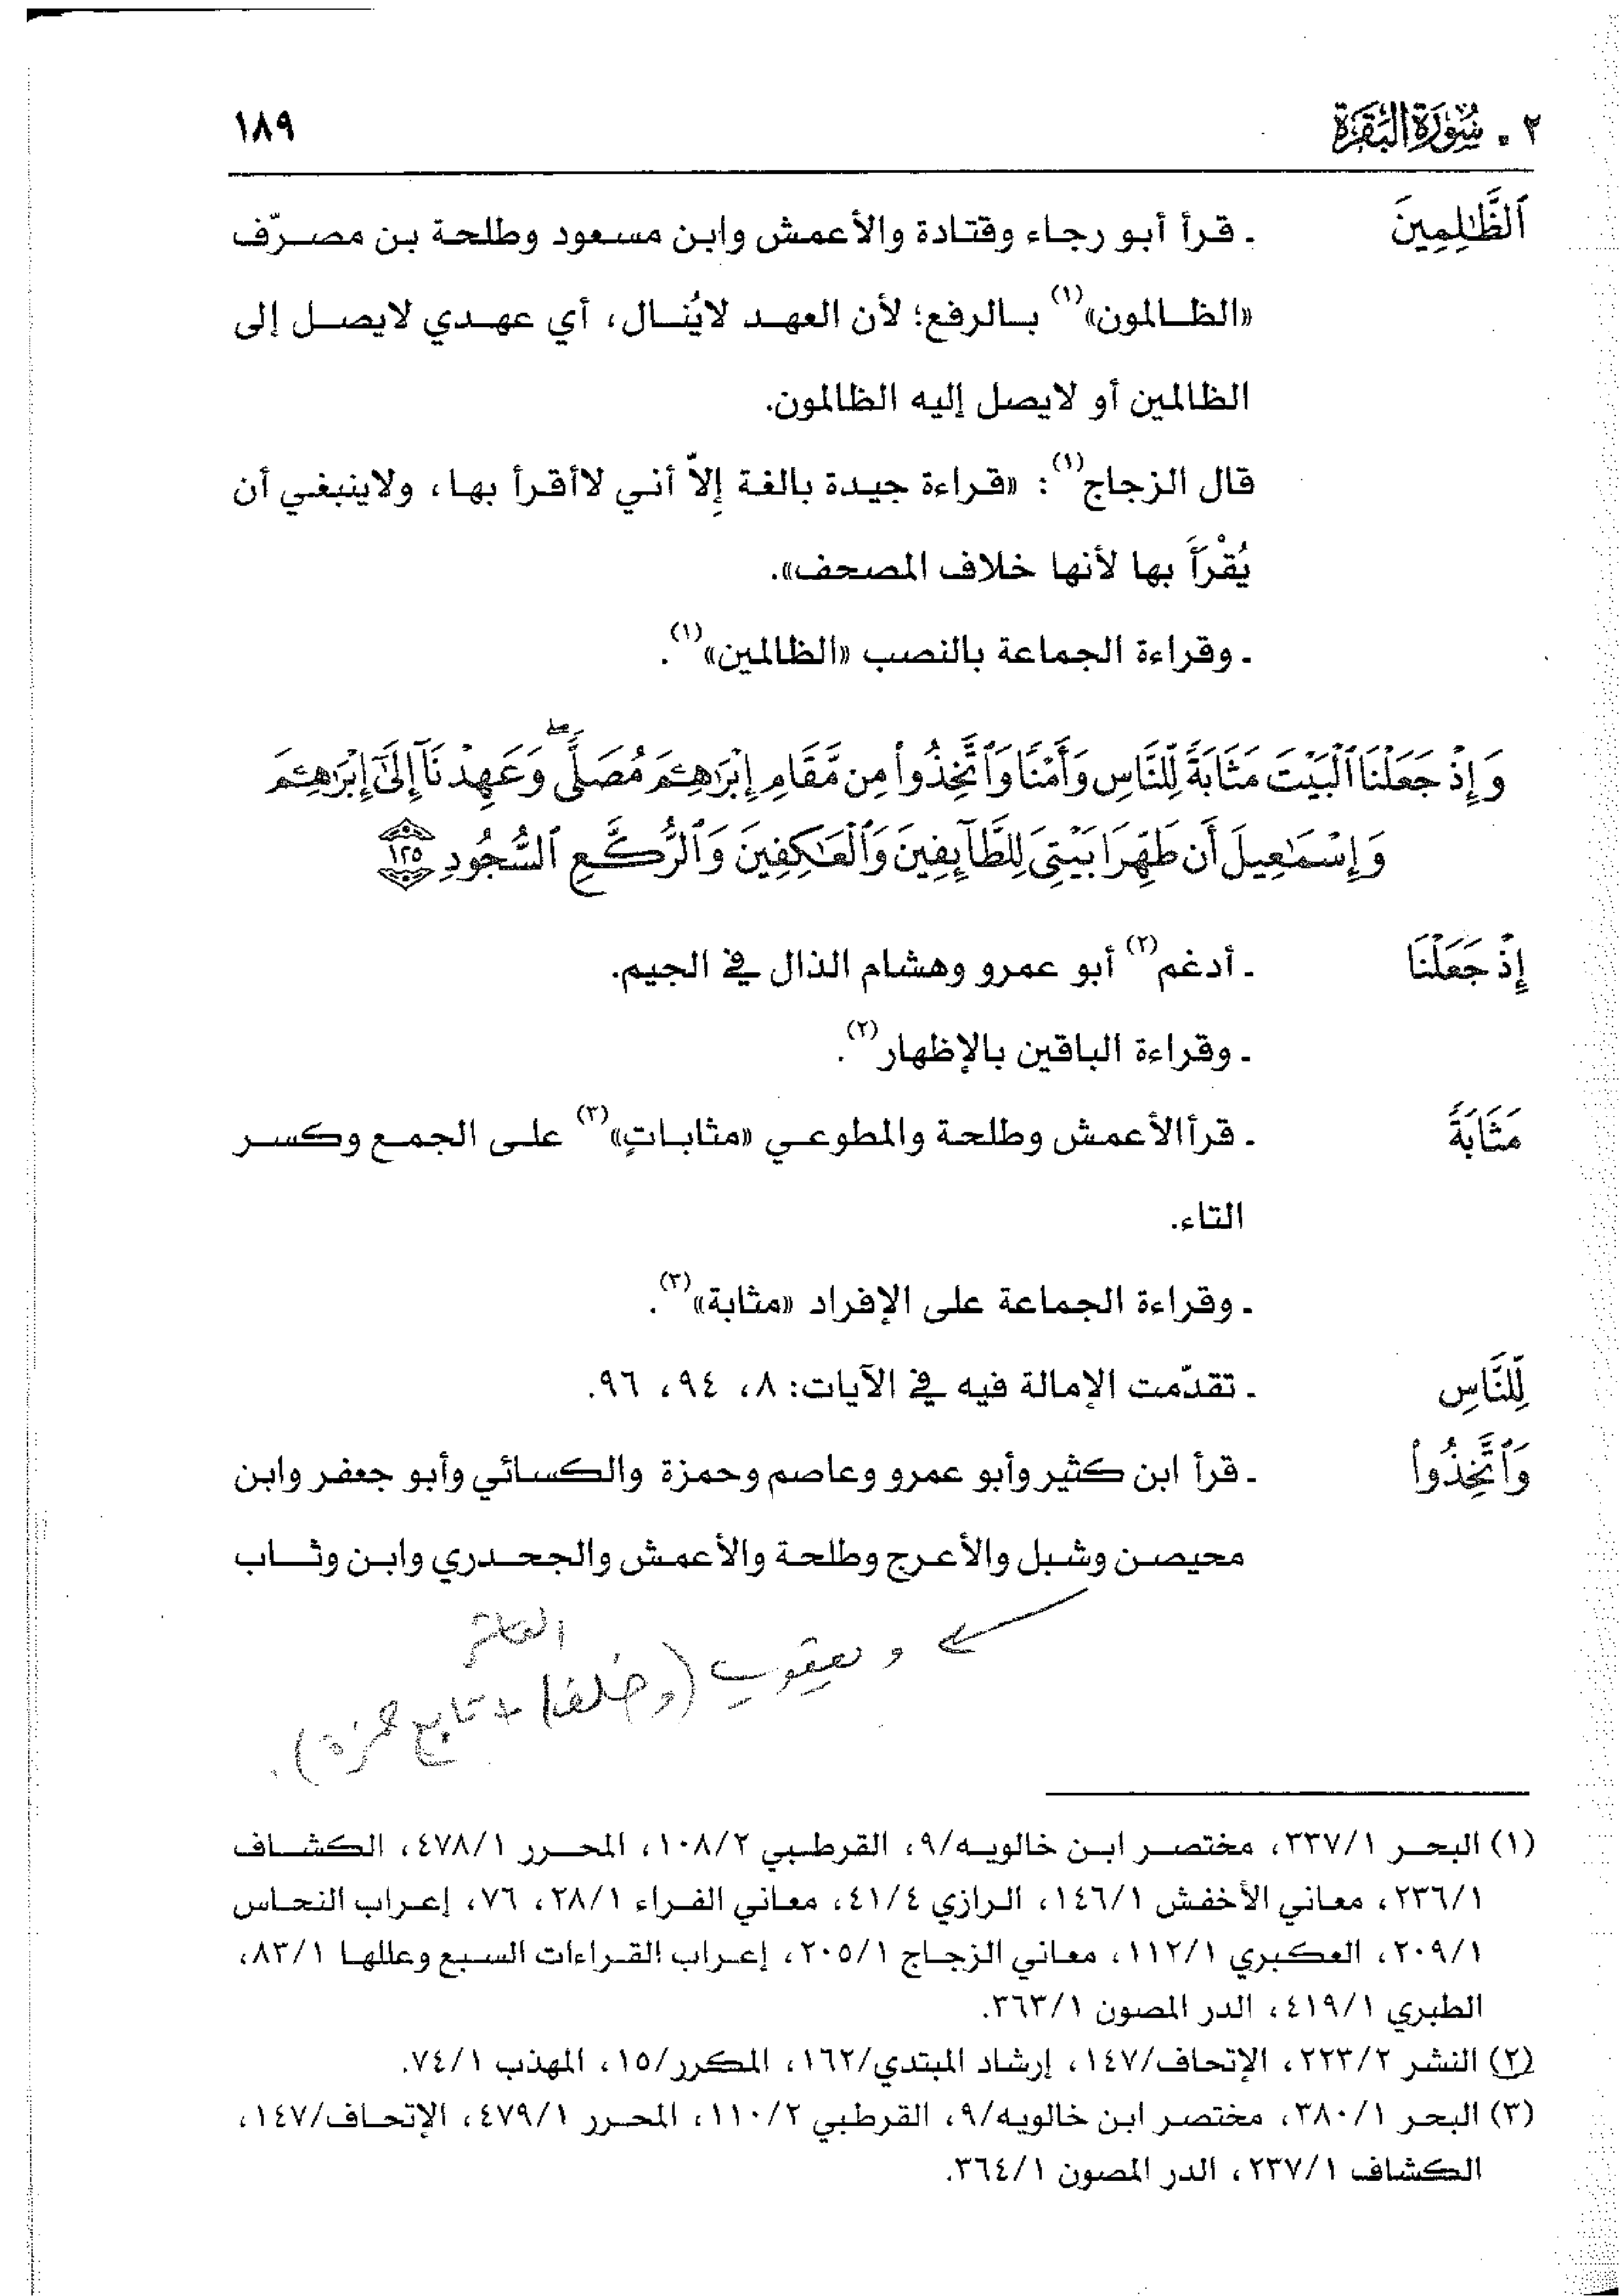 ٢ . سُورَةُ البَقَرَة ١٨٩
ٱلظَّٰلِمِينَ ـ قرأ أبو رجاء وقتادة والأعمش وابن مسعود وطلحة بن مصرّف
«الظالمون»(١) بالرفع؛ لأن العهد لايُنال، أي عهدي لايصل إلى
الظالمين أو لايصل إليه الظالمون.
قال الزجاج(١): «قراءة جيدة بالغة إلاّ أني لاأقرأ بها، ولاينبغي أن
يُقْرَأَ بها لأنها خلاف المصحف».
ـ وقراءة الجماعة بالنصب «الظالمين»(١).
وَإِذْ جَعَلْنَا ٱلْبَيْتَ مَثَابَةً لِّلنَّاسِ وَأَمْنًا وَٱتَّخِذُوا۟ مِن مَّقَامِ إِبْرَٰهِـۧمَ مُصَلًّى ۖ وَعَهِدْنَآ إِلَىٰٓ إِبْرَٰهِـۧمَ
وَإِسْمَٰعِيلَ أَن طَهِّرَا بَيْتِىَ لِلطَّآئِفِينَ وَٱلْعَٰكِفِينَ وَٱلرُّكَّعِ ٱلسُّجُودِ ١٢٥
إِذْ جَعَلْنَا ـ أدغم(٢) أبو عمرو وهشام الذال في الجيم.
ـ وقراءة الباقين بالإظهار(٢).
مَثَابَةً ـ قرأالأعمش وطلحة والمطوعي «مثاباتٍ»(٣) على الجمع وكسر
التاء.
ـ وقراءة الجماعة على الإفراد «مثابة»(٣).
لِّلنَّاسِ ـ تقدّمت الإمالة فيه في الآيات: ٨، ٩٤، ٩٦.
وَٱتَّخِذُوا۟ ـ قرأ ابن كثير وأبو عمرو وعاصم وحمزة والكسائي وأبو جعفر وابن
محيصن وشبل والأعرج وطلحة والأعمش والجحدري وابن وثاب
العاشر
و يعقوب (وخلف) + تابع حمزة).
(١) البحر ٣٣٧/١، مختصر ابن خالويه/٩، القرطبي ١٠٨/٢، المحرر ٤٧٨/١، الكشاف
٢٣٦/١، معاني الأخفش ١٤٦/١، الرازي ٤١/٤، معاني الفراء ٢٨/١، ٧٦، إعراب النحاس
٢٠٩/١، العكبري ١١٢/١، معاني الزجاج ٢٠٥/١، إعراب القراءات السبع وعللها ٨٣/١،
الطبري ٤١٩/١، الدر المصون ٣٦٣/١.
(٢) النشر ٢٢٣/٢، الإتحاف/١٤٧، إرشاد المبتدي/١٦٢، المكرر/١٥، المهذب ٧٤/١.
(٣) البحر ٣٨٠/١، مختصر ابن خالويه/٩، القرطبي ١١٠/٢، المحرر ٤٧٩/١، الإتحاف/١٤٧،
الكشاف ٢٣٧/١، الدر المصون ٣٦٤/١.